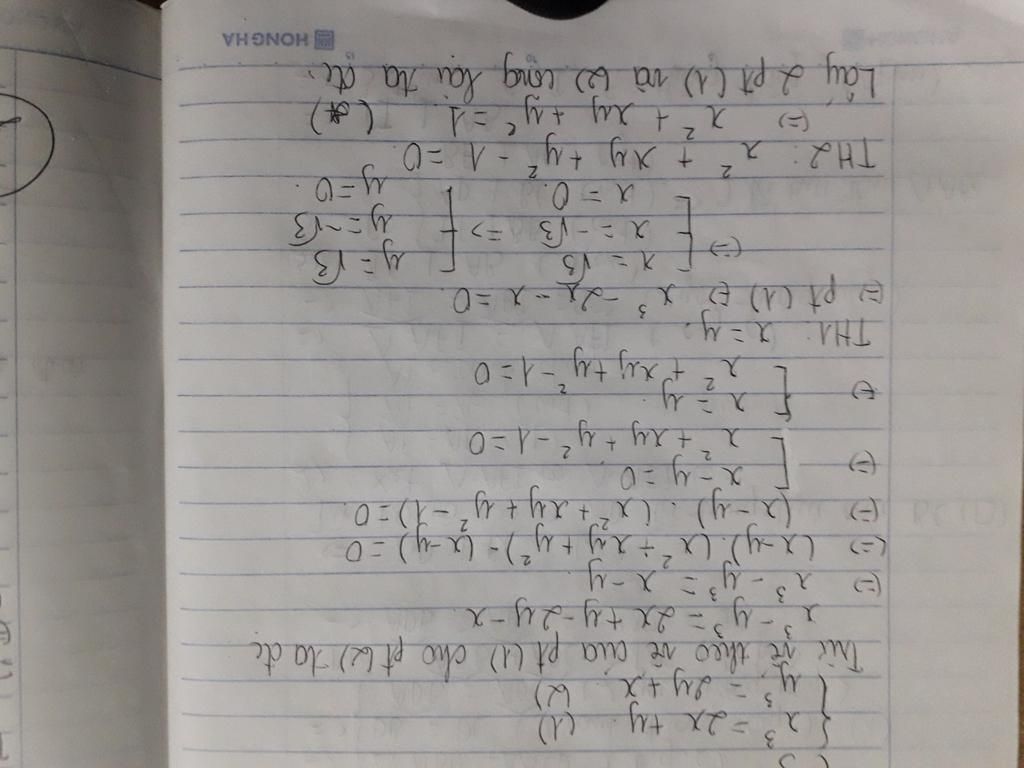 HONG HA
{ x³ = 2x + y (1)
{ y³ = 2y + x (2)
Trừ vế theo vế của pt (1) cho pt (2) ta đc
x³ - y³ = 2x + y - 2y - x
(=) x³ - y³ = x - y
(=) (x - y).(x² + xy + y²) - (x - y) = 0
(=) (x - y).(x² + xy + y² - 1) = 0
(=) [ x - y = 0
[ x² + xy + y² - 1 = 0
(=) [ x = y
[ x² + xy + y² - 1 = 0
TH1: x = y
(=) pt (1) (=) x³ - 2x - x = 0
(=) [ x = √3 => [ y = √3
[ x = -√3 [ y = -√3
[ x = 0 [ y = 0
TH2: x² + xy + y² - 1 = 0
(=) x² + xy + y² = 1 (*)
Lấy 2 pt (1) và (2) cộng lại ta đc